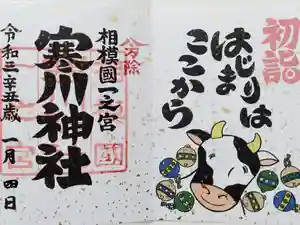 初詣。
はじまりは
ここから
八方除
相模國一之宮
寒川神社
令和三辛丑歳 一月四日